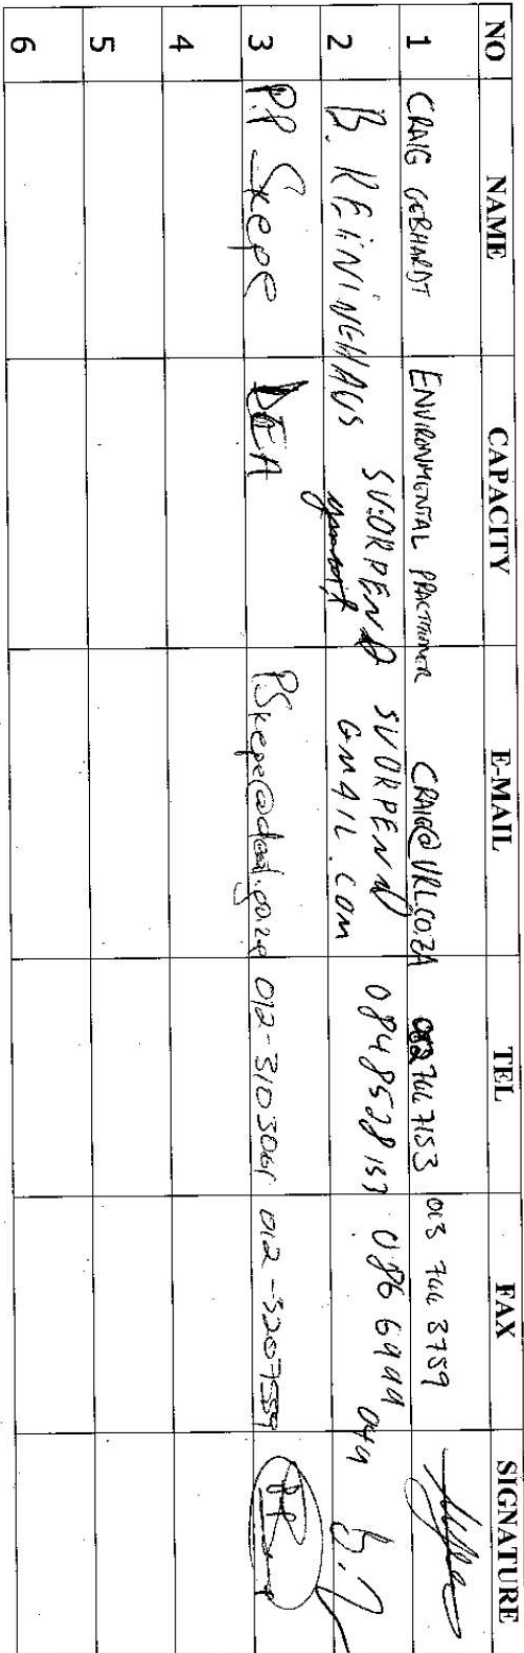 NO NAME CAPACITY E-MAIL TEL FAX SIGNATURE
1 CRAIG GEBHARDT ENVIRONMENTAL PRACTITIONER CRAIG@VRL.CO.ZA 7153 013 744 3759
2 B. REININGHAUS SVORPEND SVORPEND
GMAIL.COM 0848528153 086 6444 044
3 P.P Skepe DEA 012-3103061 012-3207539
4
5
6